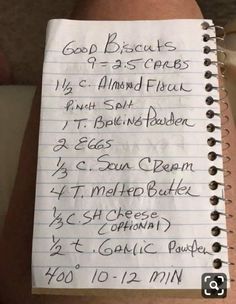 Good Biscuts
9 = 2.5 CARBS
1 1/2 C. Almond Flour
Pinch Salt
1 T. Baking Powder
2 Eggs
1/3 C. Sour Cream
4 T. Melted Butter
1/3 C. SH Cheese
(optional)
1/2 t. Garlic Powder
400° 10-12 MIN